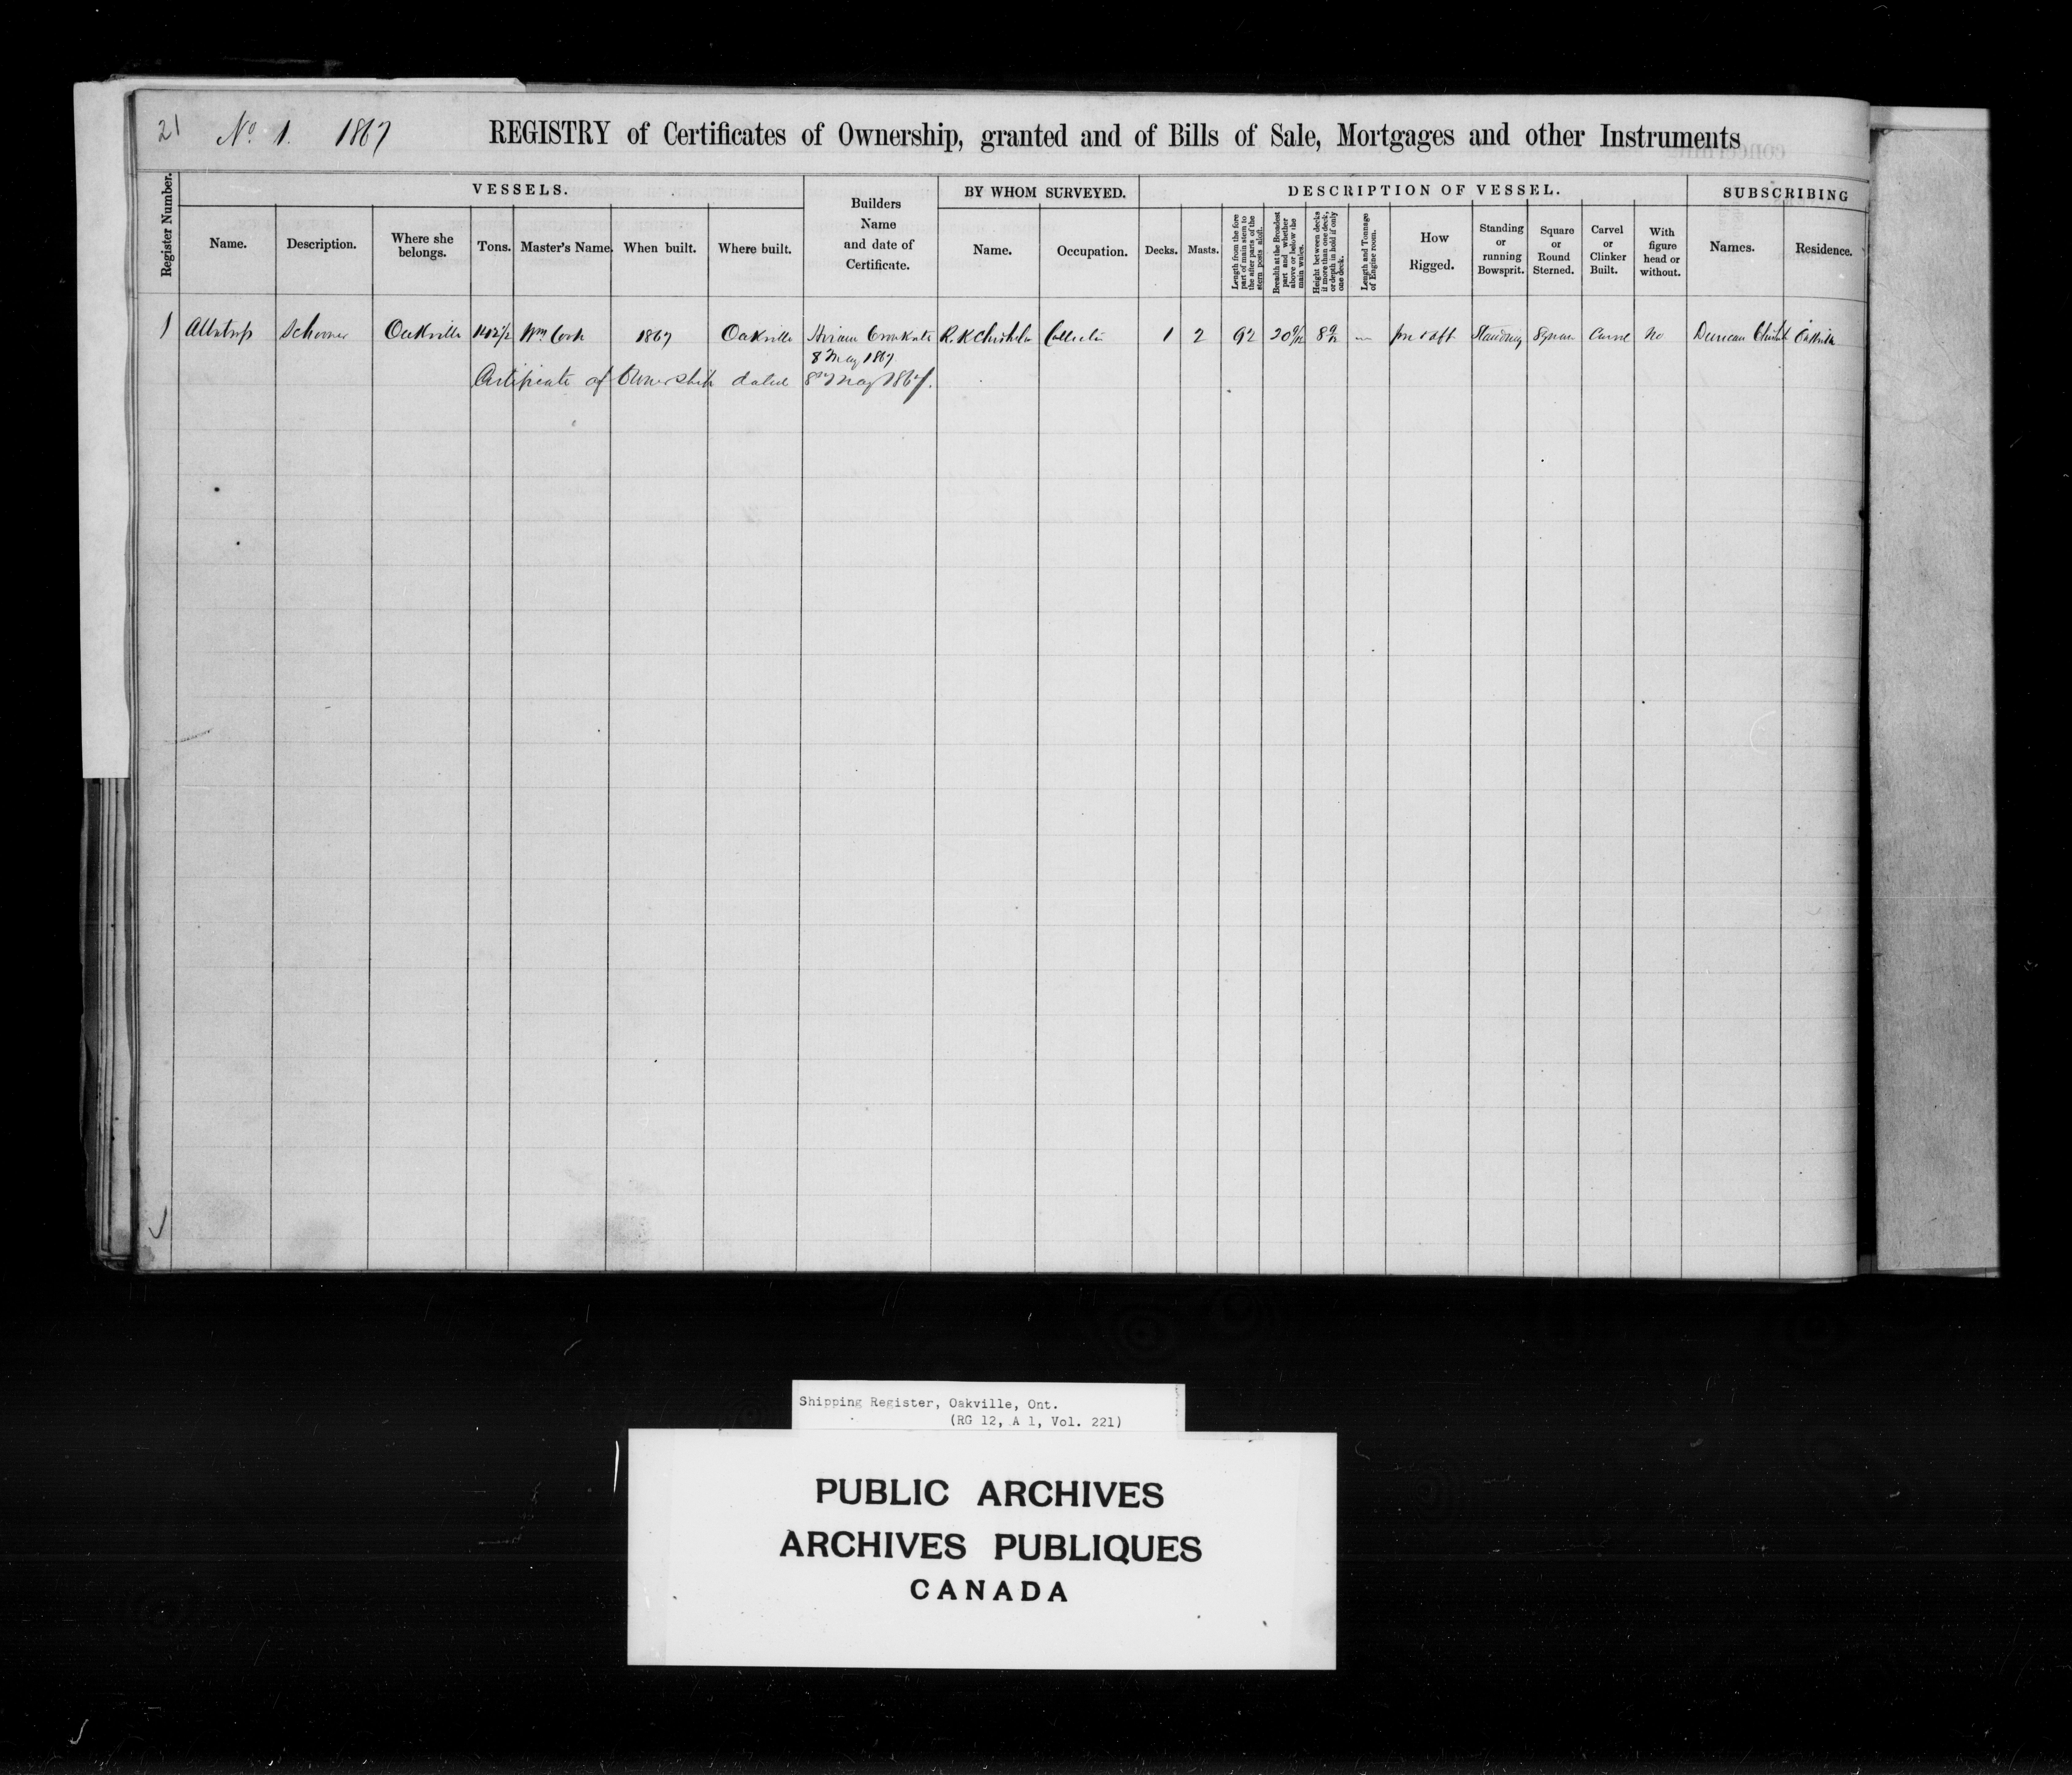 21 No. 1. 1867 REGISTRY of Certificates of Ownership, granted and of Bills of Sale, Mortgages and other Instruments
Register Number.
VESSELS.
Name.
Description.
Where she
belongs.
Tons.
Master's Name.
When built.
Where built.
Builders
Name
and date of
Certificate.
BY WHOM SURVEYED.
Name.
Occupation.
DESCRIPTION OF VESSEL.
Decks.
Masts.
Length from the fore
part of main stem to
the after parts of the
stern posts aloft.
Breadth at the Broadest
part and whether
above or below the
main wales.
Height between decks
if more than one deck,
or depth in hold if only
one deck.
Length and Tonnage
of Engine room.
How
Rigged.
Standing
or
running
Bowsprit.
Square
or
Round
Sterned.
Carvel
or
Clinker
Built.
With
figure
head or
without.
SUBSCRIBING
Names.
Residence.
1 Albatross Schooner Oakville Wm Cook 1867 Oakville Hiram R. K Chisholm Collector 1 2 92 fore & aft Standing Square Carvel No Duncan Oakville
8 May 1867
Certificate of Ownership dated 8th May 1867.
Shipping Register, Oakville, Ont.
(RG 12, A 1, Vol. 221)
PUBLIC ARCHIVES
ARCHIVES PUBLIQUES
CANADA